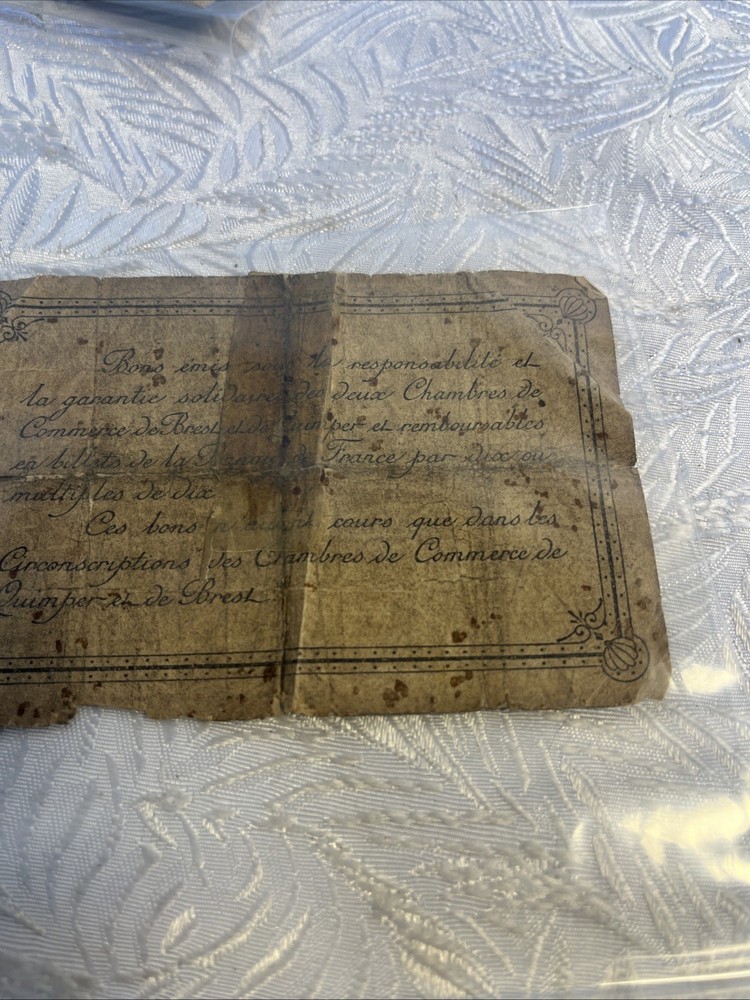 Bons émis sous la responsabilité et
la garantie solidaire des deux Chambres de
Commerce de Brest et de Quimper et remboursables
en billets de la Banque de France par dix ou
multiples de dix
Ces bons n'auront cours que dans les
Circonscriptions des Chambres de Commerce de
Quimper et de Brest.